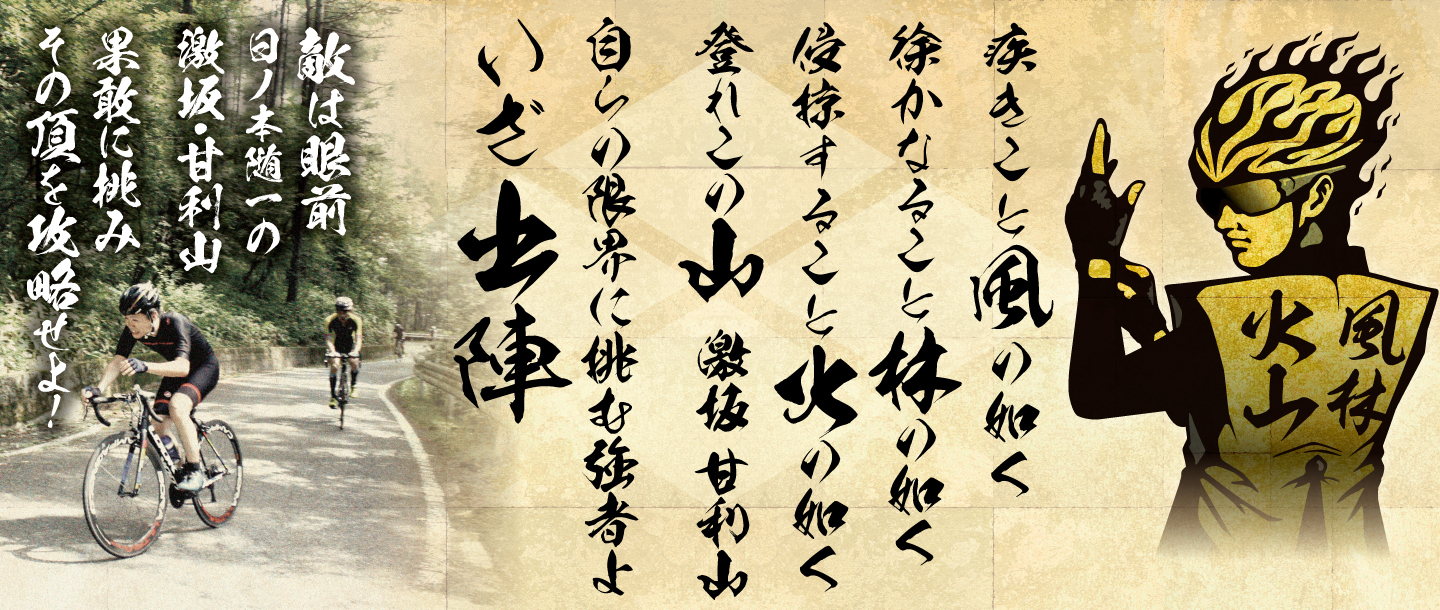 風林
火山
疾きこと風の如く
徐かなること林の如く
侵掠すること火の如く
登れこの山 激坂 甘利山
自らの限界に挑む強者よ
いざ出陣
敵は眼前
日ノ本随一の
激坂・甘利山
果敢に挑み
その頂を攻略せよ!